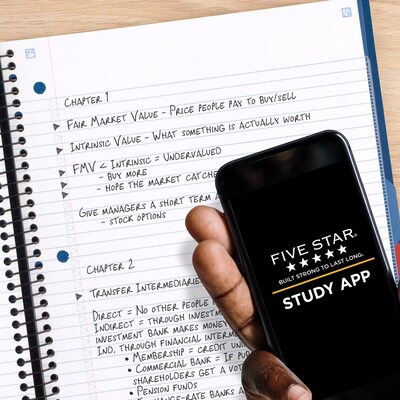 CHAPTER 1
FAIR MARKET VALUE - PRICE PEOPLE PAY TO BUY/SELL
INTRINSIC VALUE - WHAT SOMETHING IS ACTUALLY WORTH
FMV < INTRINSIC = UNDERVALUED
- BUY MORE
- HOPE THE MARKET CATCHE
GIVE MANAGERS A SHORT TERM
- STOCK OPTIONS
CHAPTER 2
TRANSFER INTERMEDIARIE
DIRECT = NO OTHER PEOPLE
INDIRECT = THROUGH INVESTM
INVESTMENT BANK MAKES MONEY
IND. THROUGH FINANCIAL INTERM
• MEMBERSHIP = CREDIT UN
• COMMERCIAL BANK = IF PU
SHAREHOLDERS GET A VOT
• PENSION FUNDS
-RATE BANKS A
FIVE STAR®
BUILT STRONG TO LAST LONG.
STUDY APP